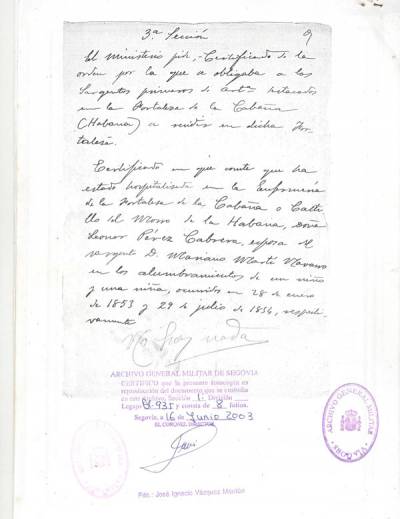 3ª Sección 9
El Ministerio pide, - Certificado de la
orden por la que se obligaba a los
Sargentos primeros de Artª destacados
en la Fortaleza de la Cabaña
(Habana) a residir en dicha For-
taleza.
Certificado en que conste que ha
estado hospitalizada en la Enfermería
de la Fortaleza de la Cabaña o Casti-
llo del Morro de la Habana, Doña
Leonor Pérez Cabrera, esposa del
sargento D. Mariano Martí Navarro
en los alumbramientos de un niño
y una niña, ocurridos en 28 de enero
de 1853 y 29 de julio de 1854, respecti-
vamente
No hay nada
ARCHIVO GENERAL MILITAR DE SEGOVIA
CERTIFICO que la presente fotocopia es
reproducción del documento que se custodia
en este Archivo, Sección 1ª División
Legajo M-935 y consta de 8 folios.
Segovia, a 16 Junio 2003
EL CORONEL DIRECTOR
ARCHIVO GENERAL MILITAR
SEGOVIA
Fdo.: José Ignacio Vázquez Montón